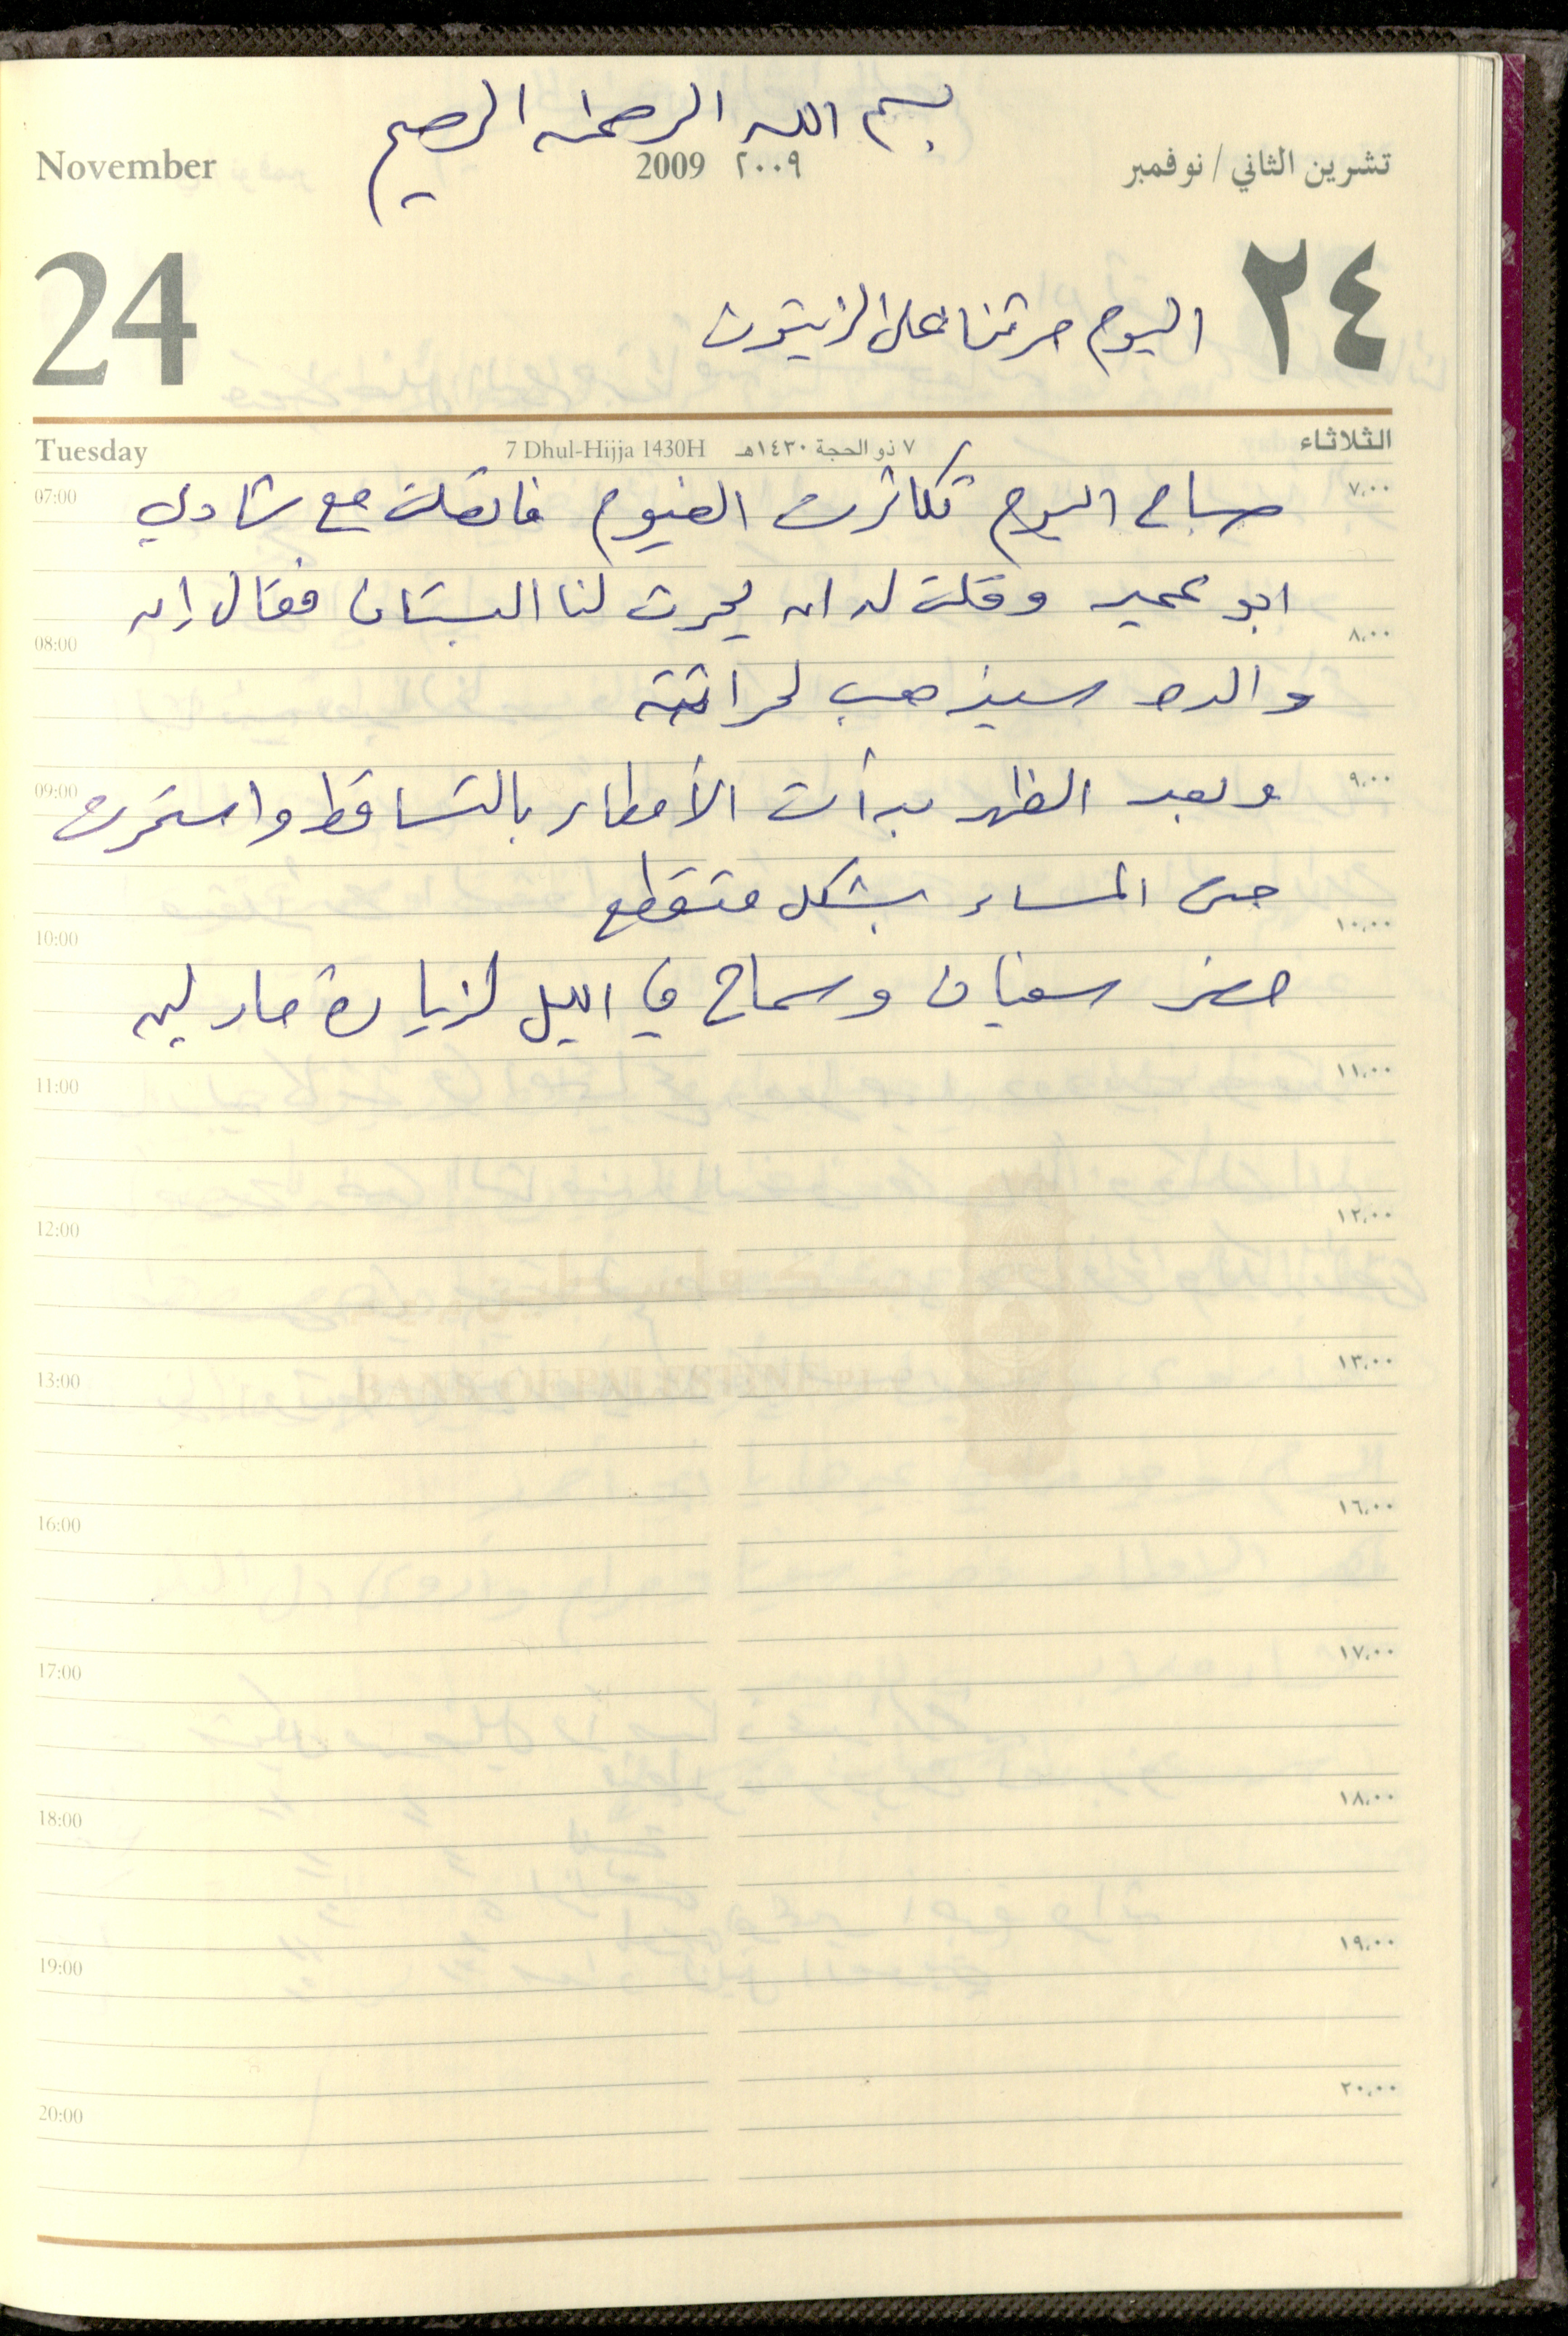 بسم الله الرحمن الرحيم
November 2009 ٢٠٠٩ تشرين الثاني / نوفمبر
24 ٢٤
اليوم حرثنا على الزيتون
Tuesday 7 Dhul-Hijja 1430H ٧ ذو الحجة ١٤٣٠هـ الثلاثاء
07:00 صباح اليوم تكاثرت الغيوم فاتصلت مع شادي ٧،٠٠
ابو عمير وقلت له ان يحرث لنا البستان فقال إن
08:00 ٨،٠٠
والده سيذهب لحراثته
09:00 وبعد الظهر بدأت الأمطار بالتساقط واستمرت ٩،٠٠
حتى المساء بشكل متقطع
10:00 ١٠،٠٠
حضر سفيان وسماح في الليل لزيارة مارلين
11:00 ١١،٠٠
12:00 ١٢،٠٠
13:00 ١٣،٠٠
BANK OF PALESTINE
16:00 ١٦،٠٠
17:00 ١٧،٠٠
18:00 ١٨،٠٠
19:00 ١٩،٠٠
20:00 ٢٠،٠٠